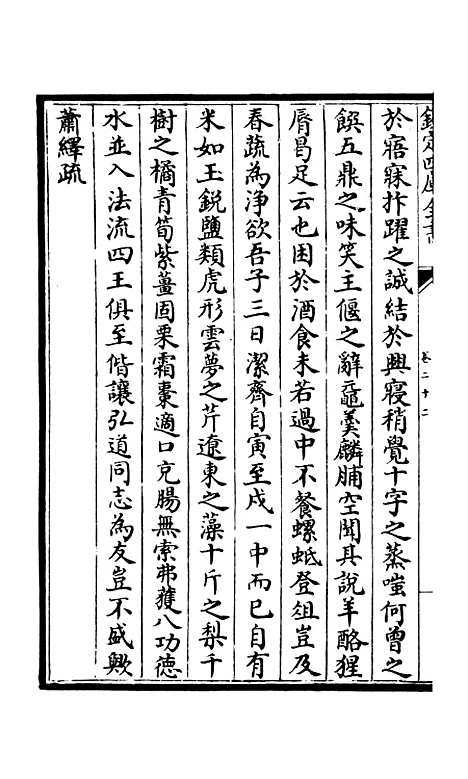 欽定四庫全書
卷二十二
於寤寐抃躍之誠結於興寢稍覺十字之蒸嗤何曾之
饌五鼎之味笑主偃之辭黿羮麟脯空聞其說羊酪猩
脣曷足云也困於酒食未若過中不餐螺蚳登俎豈及
春蔬為净欲吾子三日潔齊自寅至戍一中而已自有
米如玉銳鹽類虎形雲夢之芹遼東之藻十斤之梨千
樹之橘青筍紫薑固栗霜棗適口充腸無索弗獲八功德
水並入法流四王俱至偕讓弘道同志為友豈不盛歟
蕭繹疏